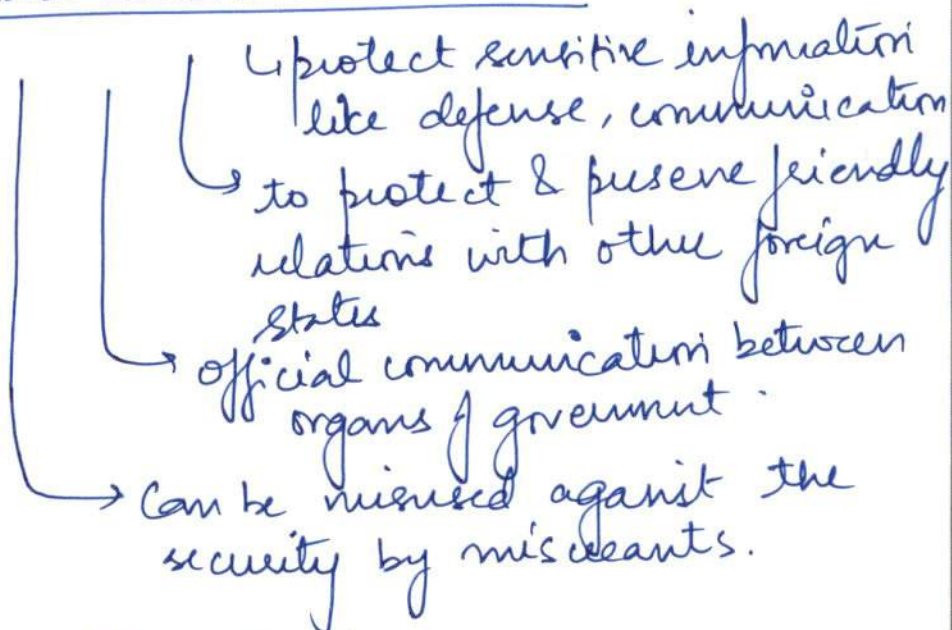 protect sensitive information
like defense, communication
to protect & preserve friendly
relations with other foreign
states
official communication between
organs of government.
Can be misused against the
security by miscreants.